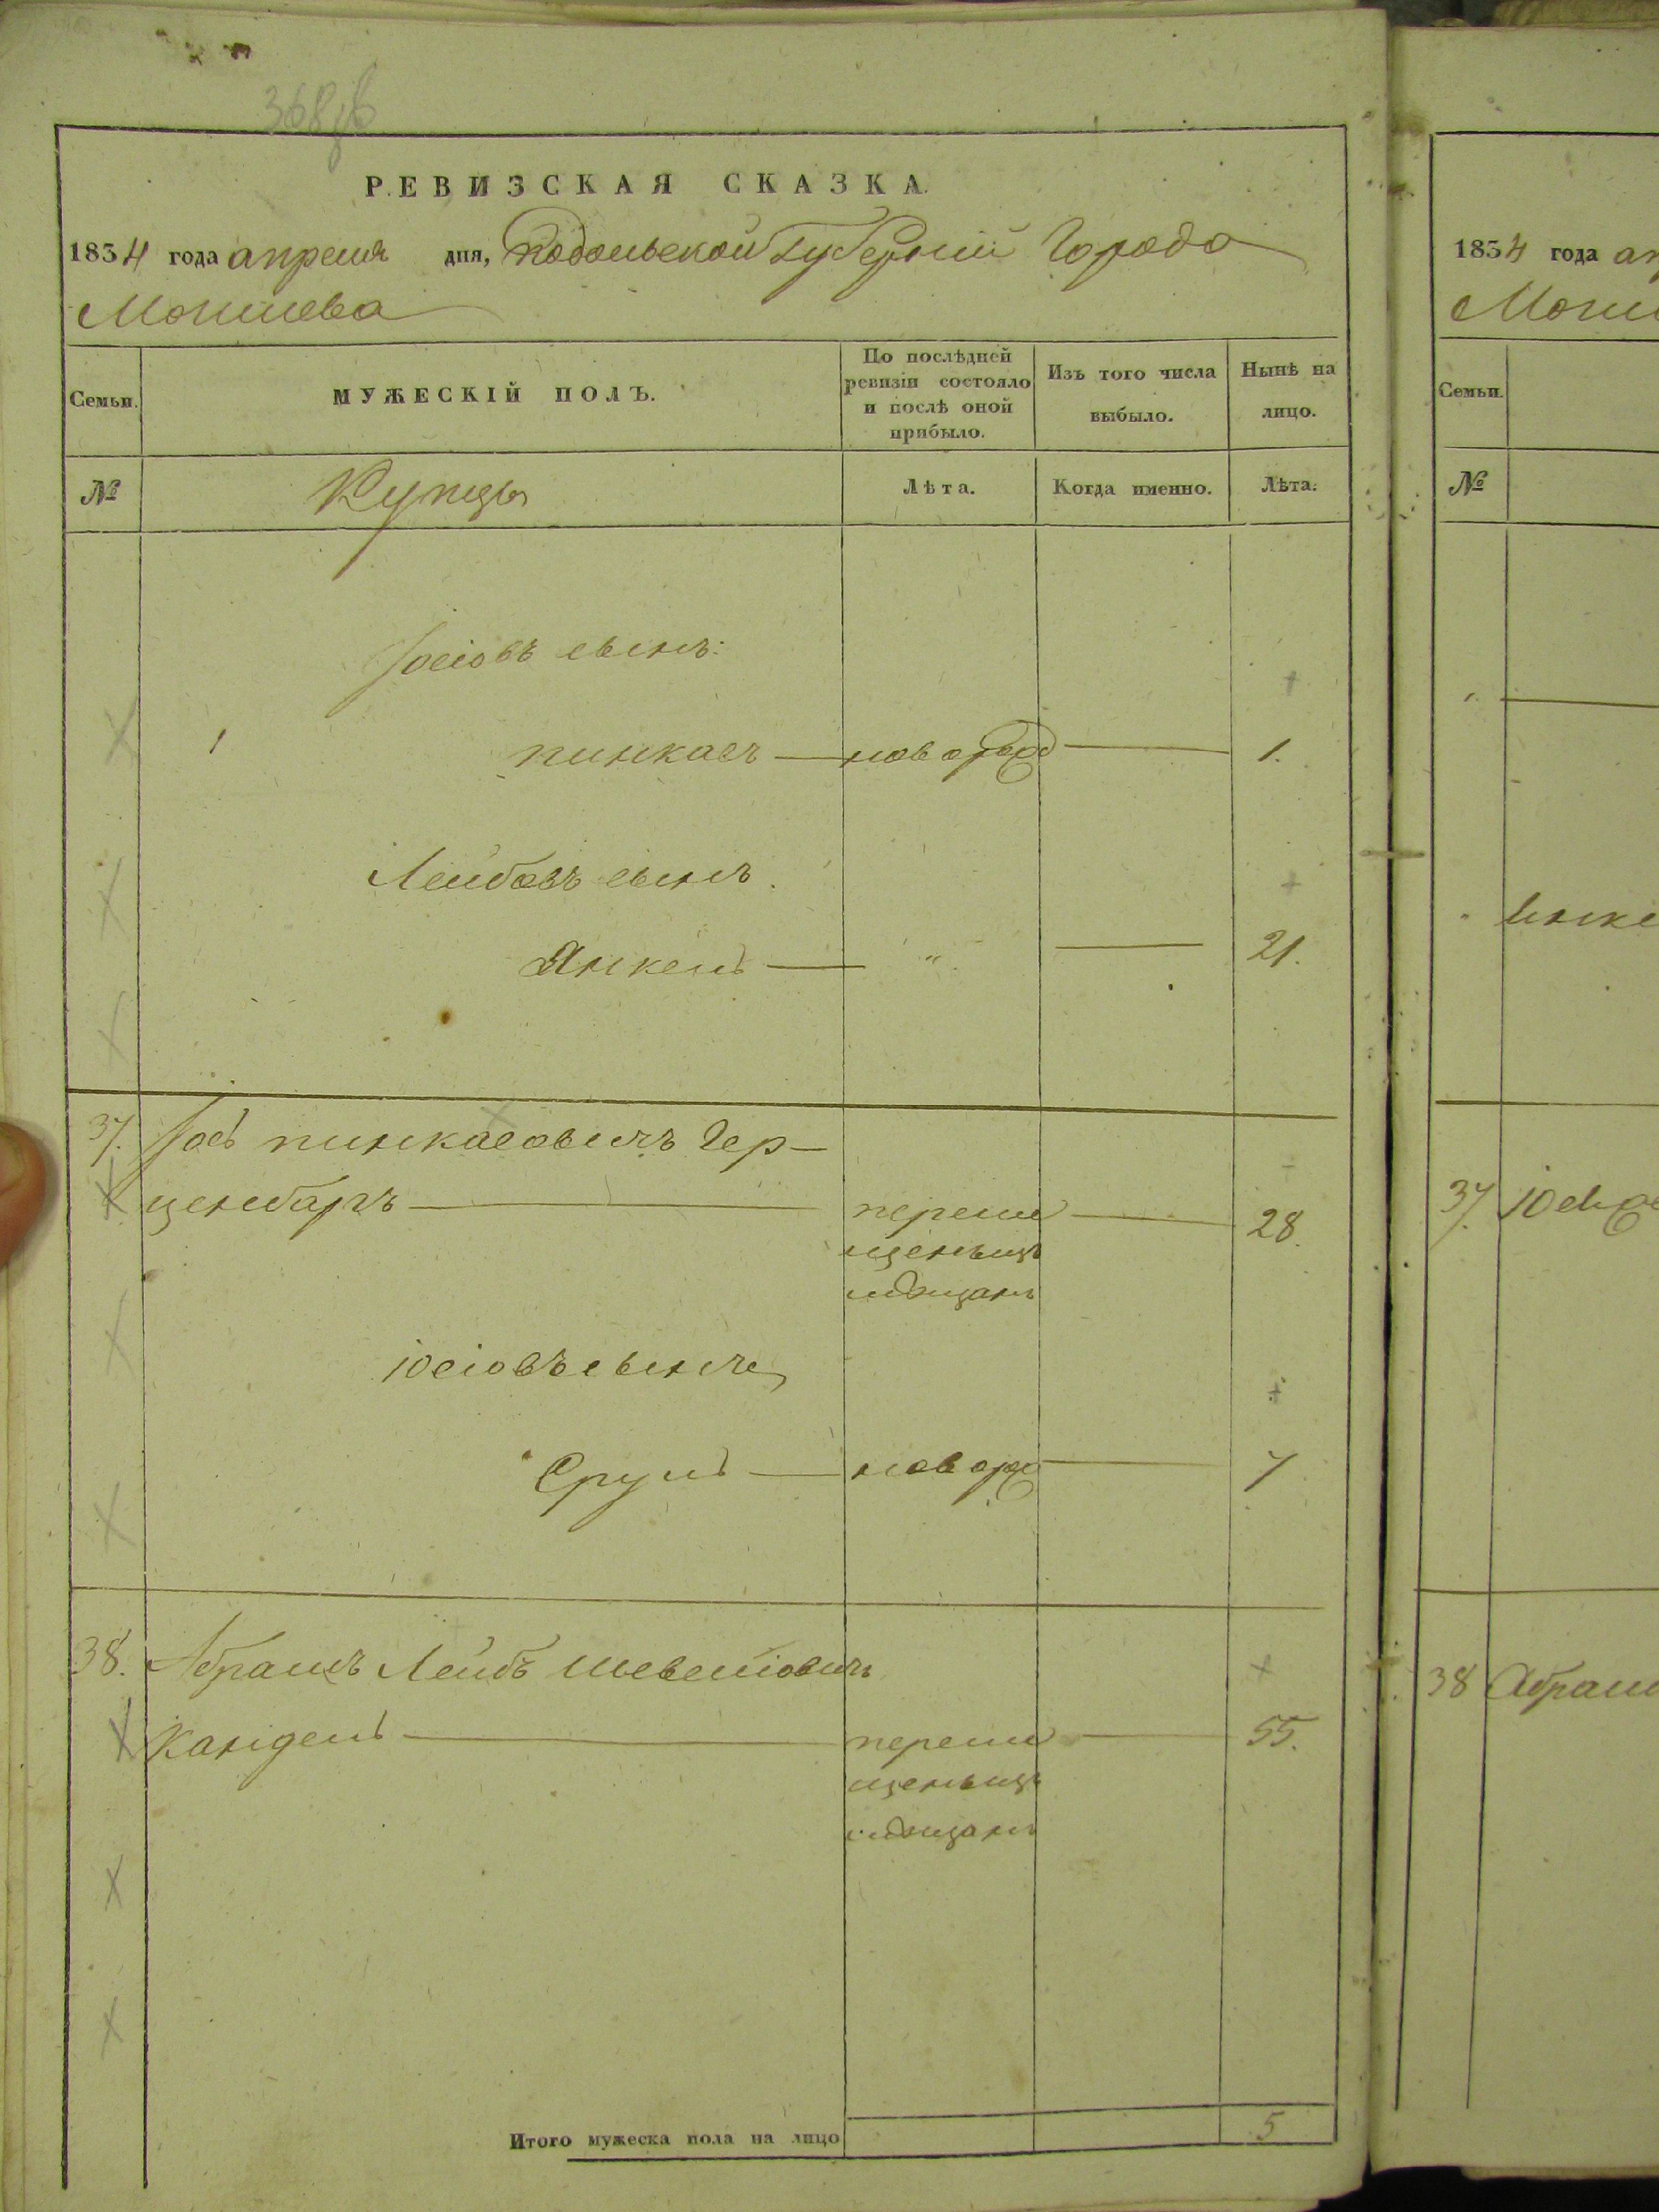 РЕВИЗСКАЯ СКАЗКА.
1834 года апреля дня, подольской Губерніи Города
Могилева
Семьи.
МУЖЕСКІЙ ПОЛЪ.
По послѣдней ревизіи состояло и послѣ оной прибыло.
Изъ того числа выбыло.
Нынѣ на лицо.
№
Купцы
Лѣта.
Когда именно.
Лѣта.
Іосіовъ сынъ:
1 пинкасъ — новород — 1.
Лейбовъ сынъ.
Янкель — " — 21.
37. Іось пинкасовичъ Гер-
ценбаръ — переме — 28.
щенъизъ
мѣщанъ
іосіовъ сынъ
Сруль — новоро — 7
38. Абрамъ Лейбъ Шевеліовичъ
Кандель — переме — 55.
щенъизъ
мѣщанъ
Итого мужеска пола на лицо 5
1834 года ап
Моги
Семьи.
№
37 іось
38 Абрам